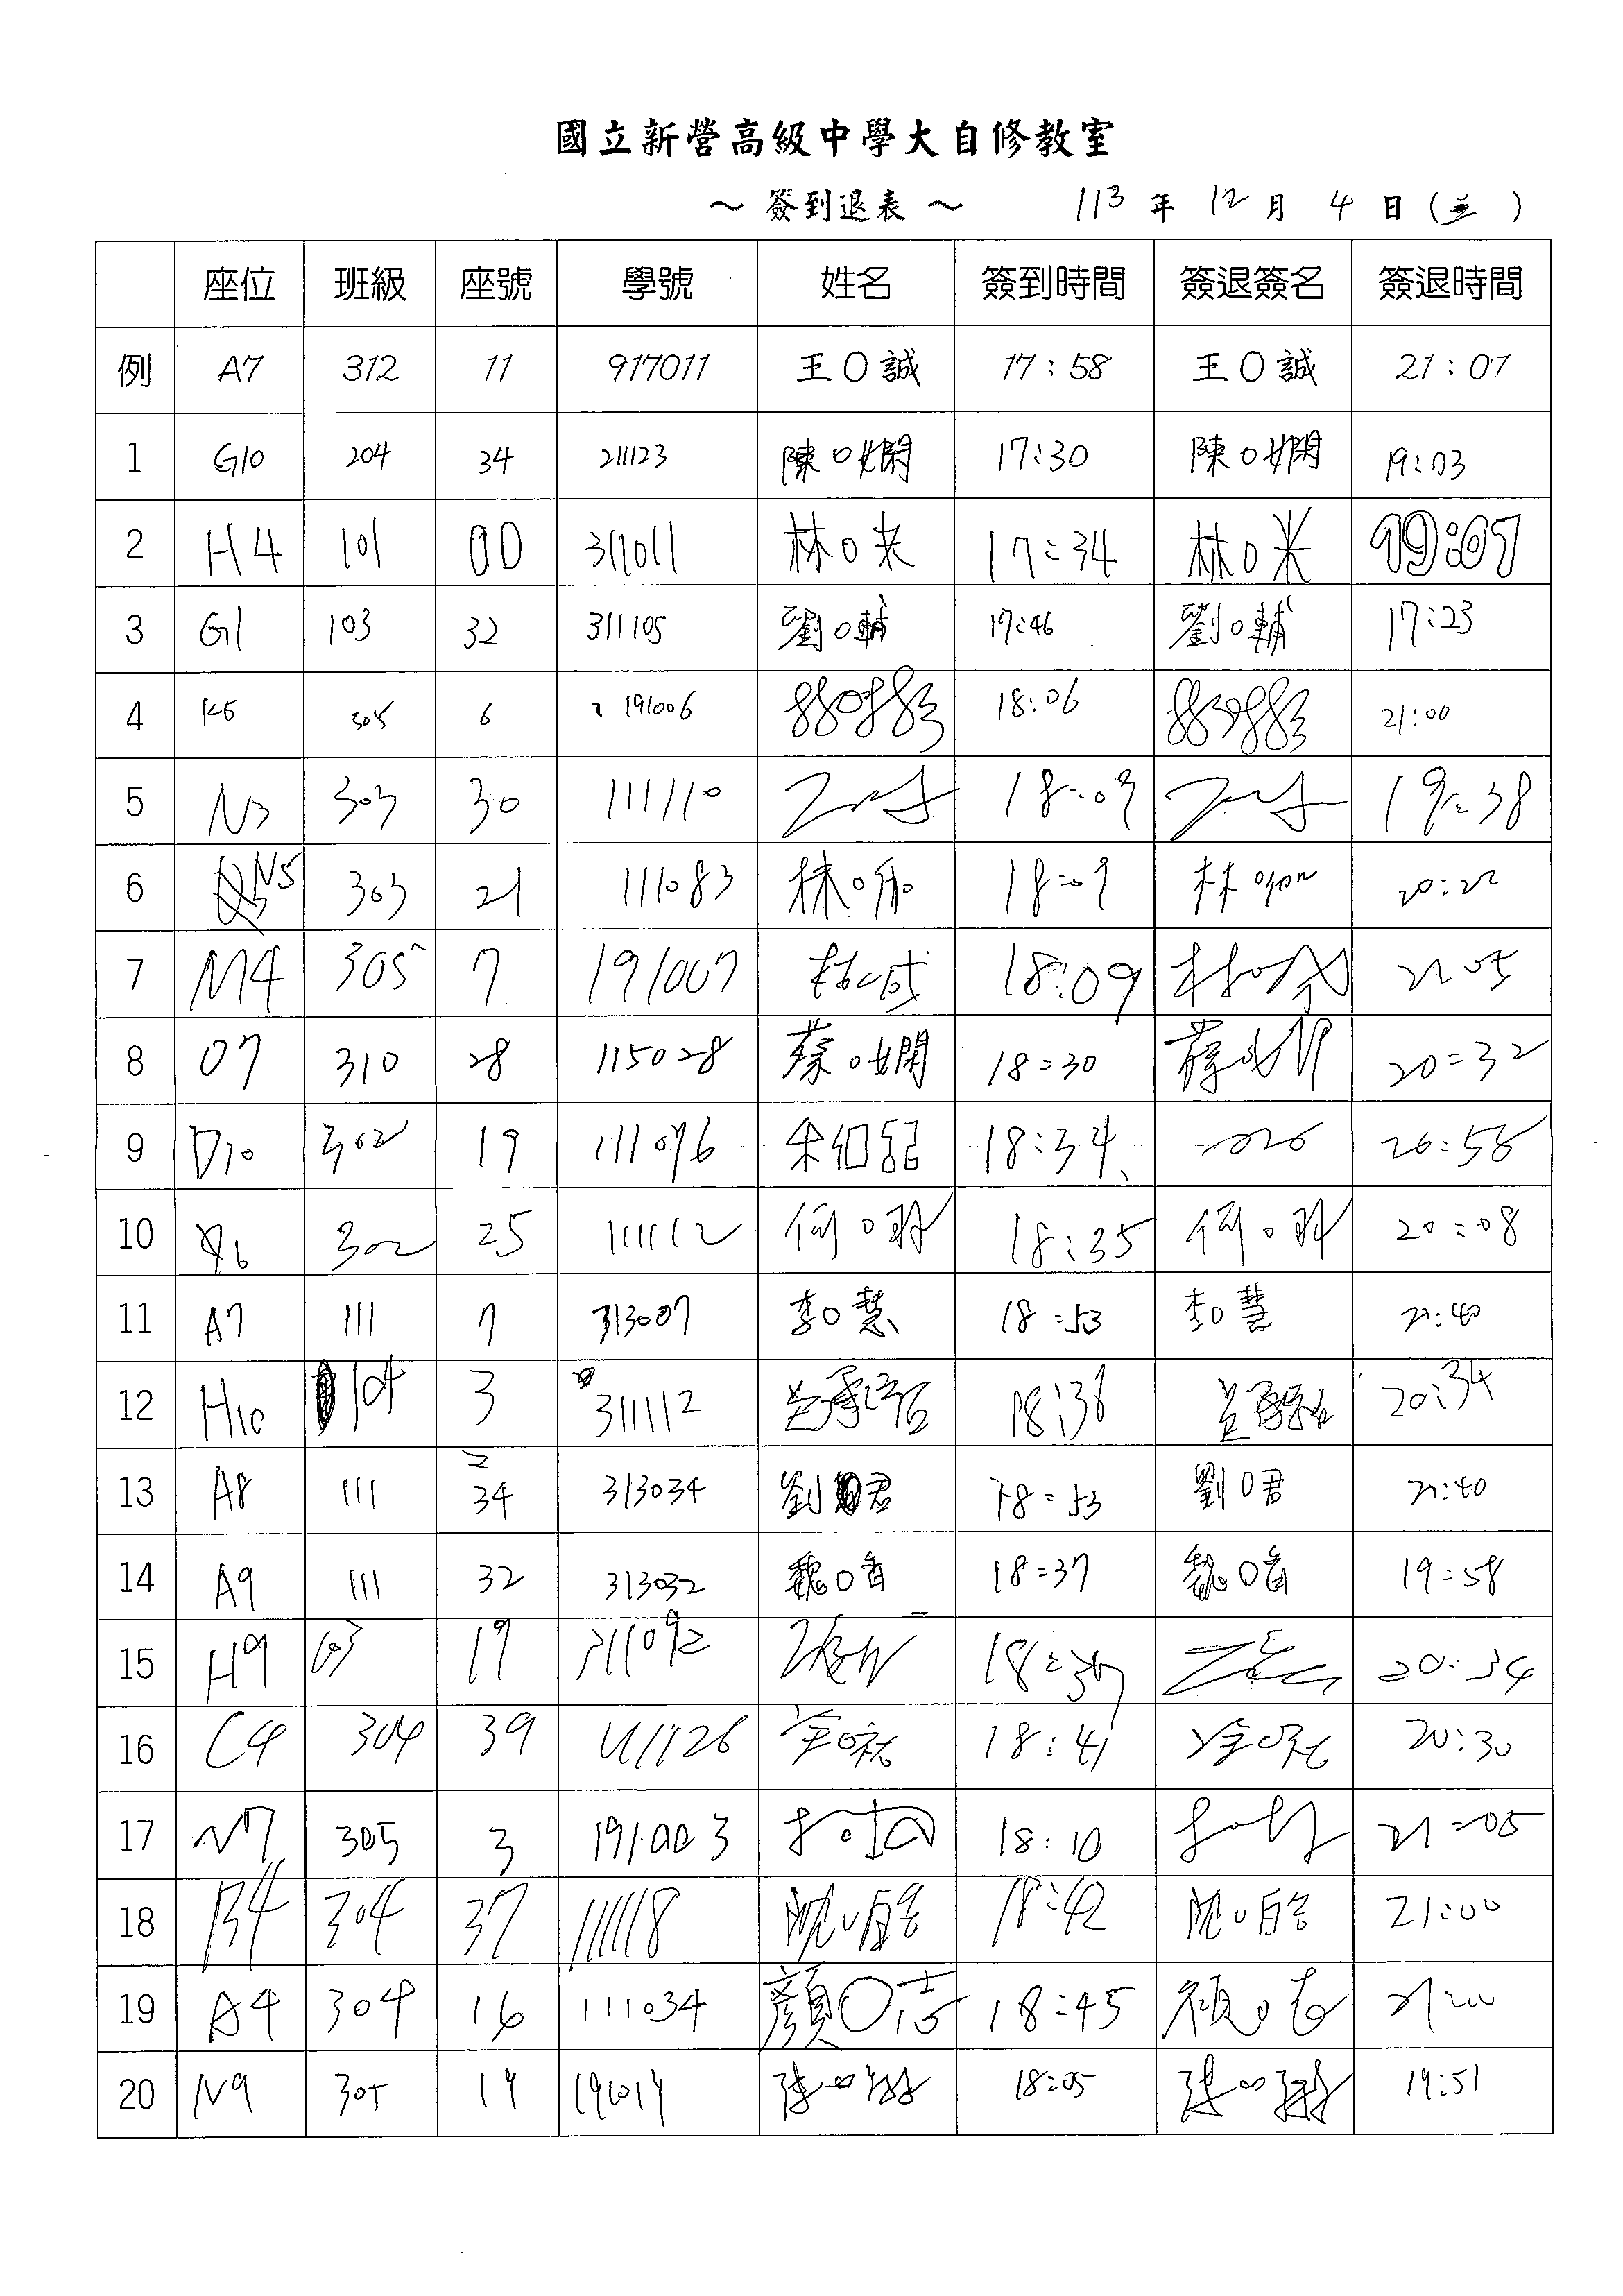 國立新營高級中學大自修教室
～ 簽到退表 ～ 113 年 12 月 4 日 ( 三 )
座位 班級 座號 學號 姓名 簽到時間 簽退簽名 簽退時間
例 A7 312 11 917011 王O誠 17:58 王O誠 21:07
1 G10 204 34 211123 陳O嫻 17:30 陳O嫻 19:03
2 H4 101 00 311011 林O 17:34 林O 19:07
3 G1 103 32 311105 劉O輔 17:46 劉O輔 17:23
4 K6 305 6 191006 18:06 21:00
5 N3 303 30 111110 18:09 19:38
6 N5 303 21 111083 林O 18:09 林O 20:22
7 M4 305 7 191007 18:09 21:05
8 O7 310 28 115028 蔡O嫻 18:30 20:32
9 D10 302 19 111076 朱 18:34 20:58
10 302 25 111112 何O 18:35 何O 20:08
11 A7 111 7 313007 李O慧 18:53 李O慧 21:40
12 H10 104 3 311112 18:36 20:34
13 A8 111 34 313034 劉O君 18:53 劉O君 21:40
14 A9 111 32 313032 魏O 18:37 魏O 19:58
15 H9 103 19 311092 18:37 20:34
16 C4 304 39 111126 18:41 20:30
17 N7 305 3 191003 18:10 21:05
18 B4 304 37 111118 18:42 21:00
19 A4 304 16 111034 顏O志 18:45 顏O志 21:00
20 N9 305 19 191019 18:05 19:51